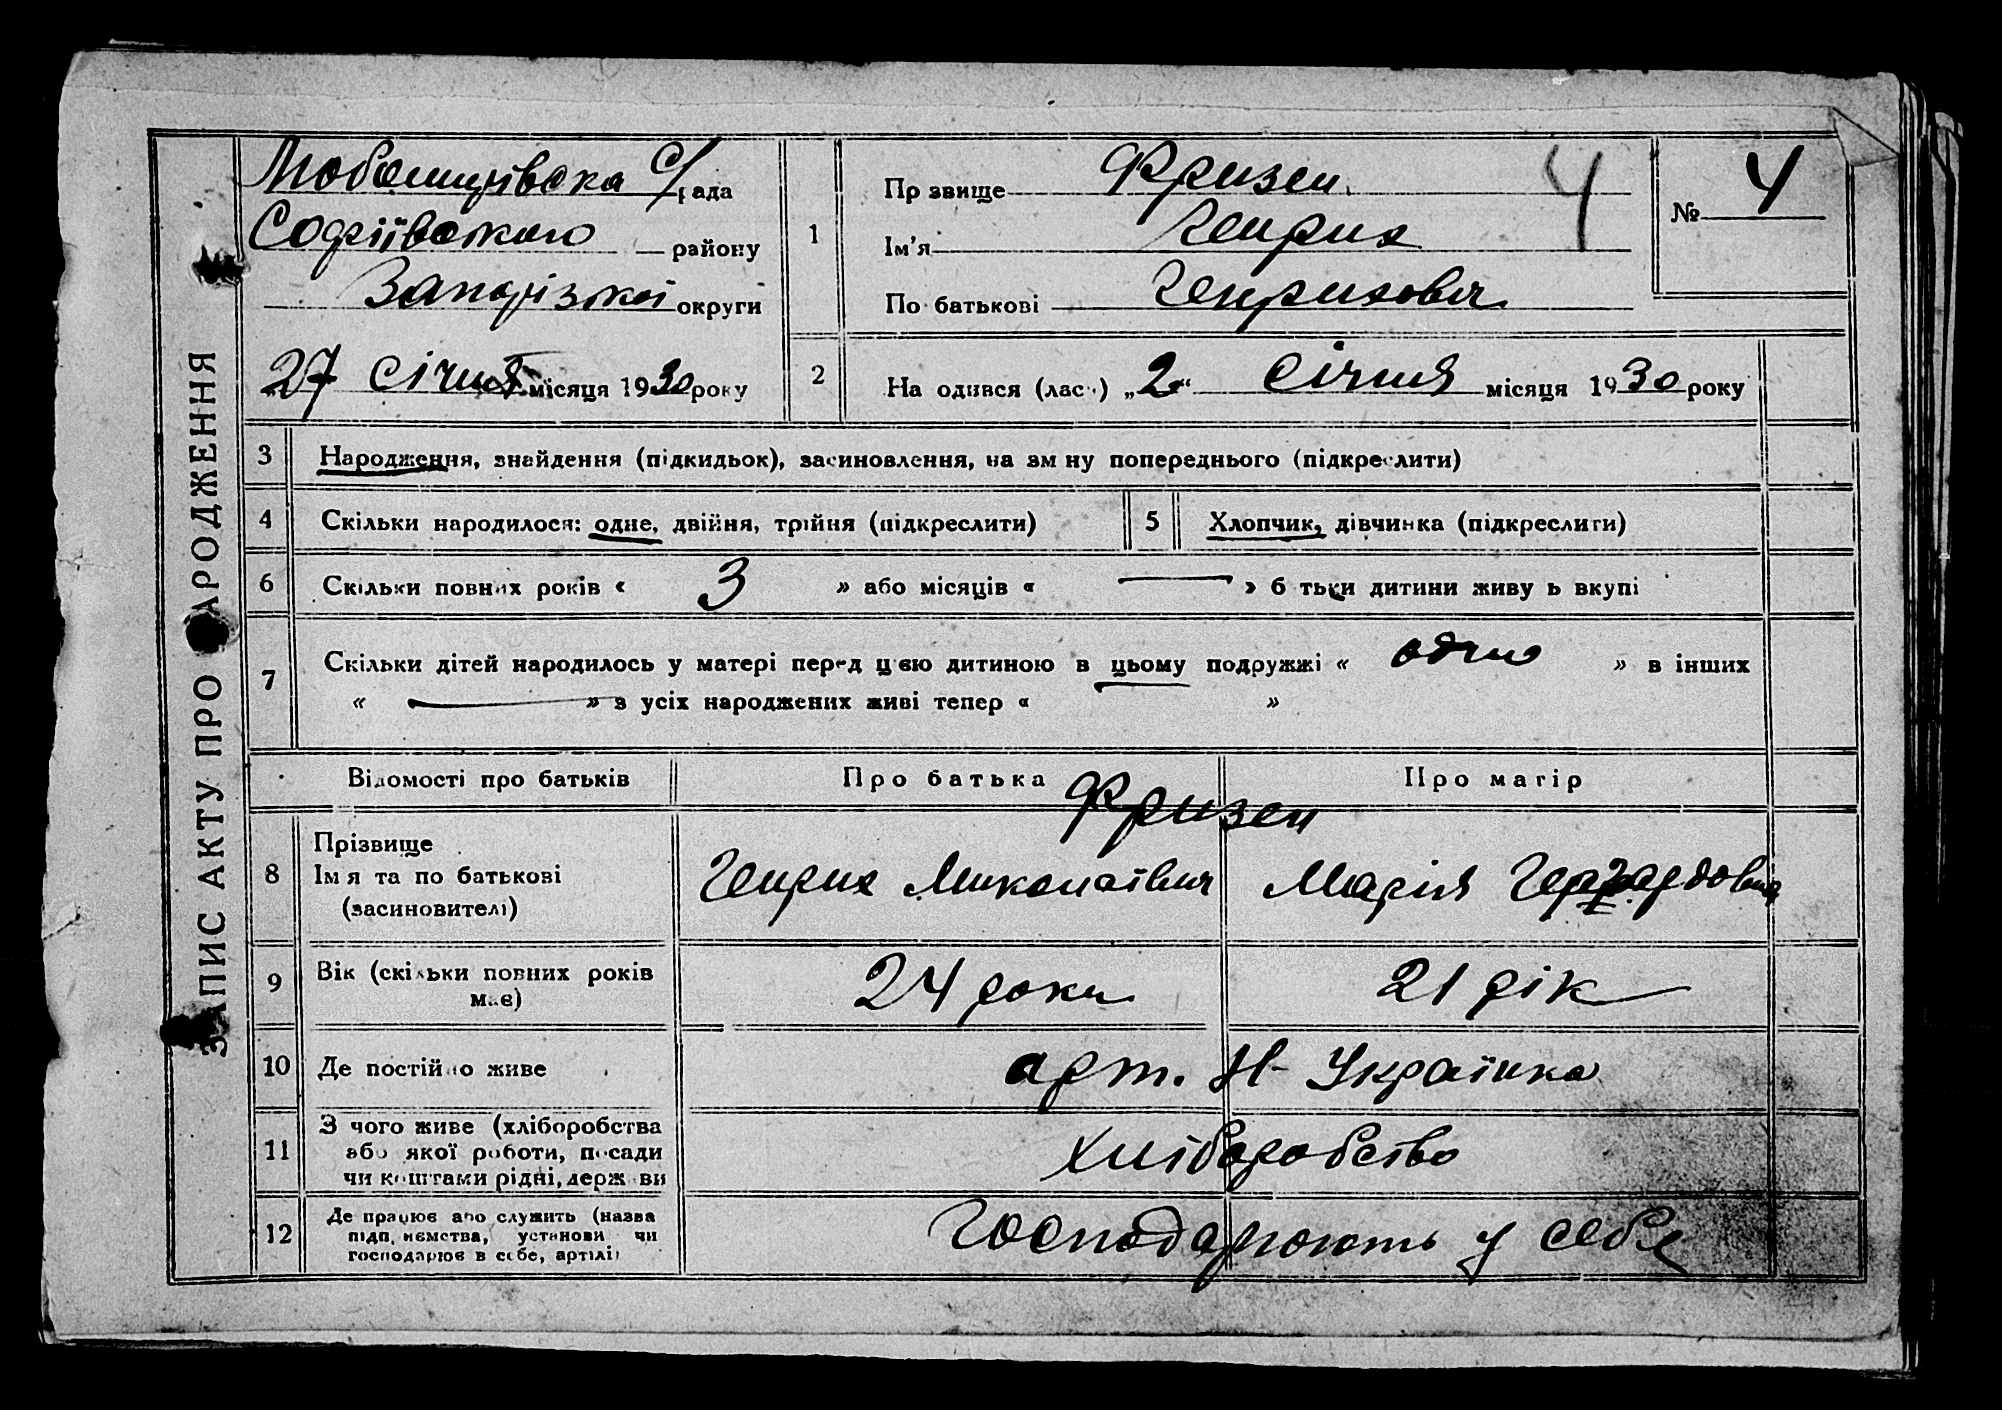 ЗАПИС АКТУ ПРО НАРОДЖЕННЯ
Любомирівска С/рада
Софіївського району
Запорізкої округи
„27 січня місяця 1930 року
1
Прізвище Фризен
Ім’я Генрих
По батькові Генрихович
4
№ 4
2
На одився (лась) „2“ січня місяця 1930 року
3 Народження, знайдення (підкидьок), засиновлення, на зміну попереднього (підкреслити)
4 Скільки народилося: одне, двійня, трійня (підкреслити)
5 Хлопчик, дівчинка (підкреслити)
6 Скільки повних років « 3 » або місяців « — » батьки дитини живуть вкупі
7 Скільки дітей народилось у матері перед цією дитиною в цьому подружжі « одно » в інших
« — » з усіх народжених живі тепер « »
Відомості про батьків
Про батька
Про матір
Фризен
8 Прізвище
Ім я та по батькові
(засиновителі)
Генрих Миколаївич
Марія Гергардовна
9 Вік (скільки повних років
має)
24 роки
21 рік
10 Де постійно живе
арт. Н- Українка
11 З чого живе (хліборобства
або якої роботи, посади
чи коштами рідні, держави
хліборобство
12 Де працює або служить (назва
підприємства, установи чи
господарює в себе, артілі)
Господарюють у себе